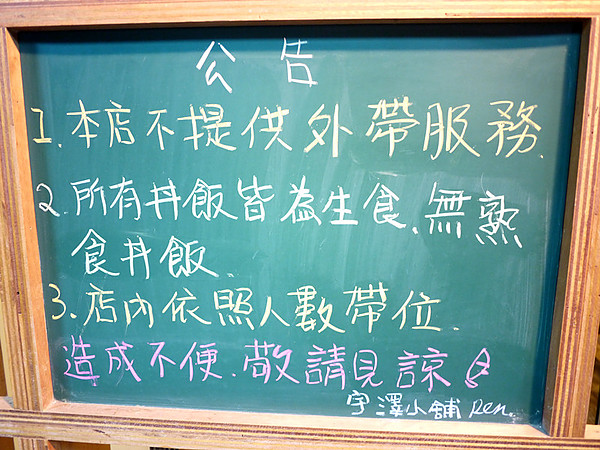 公告
1.本店不提供外帶服務.
2.所有丼飯皆為生食.無熟
食丼飯.
3.店內依照人數帶位.
造成不便.敬請見諒
宇澤小舖 Ren.